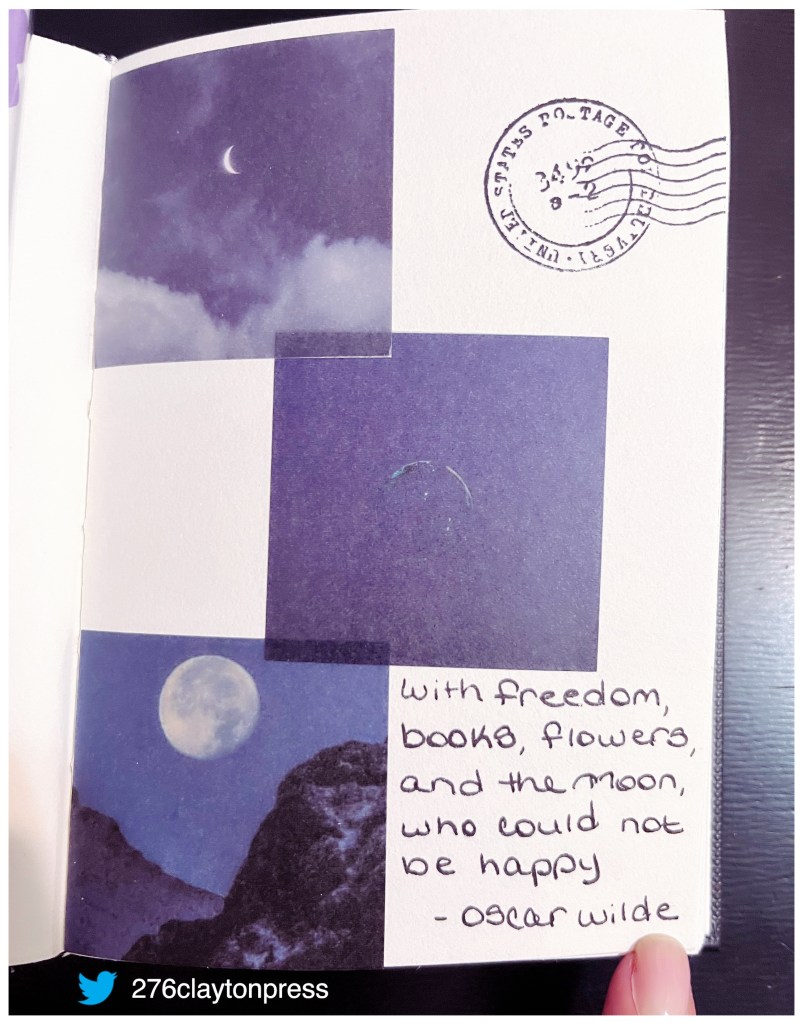 UNITED STATES
with freedom,
books, flowers,
and the moon,
who could not
be happy
- oscar wilde
276claytonpress